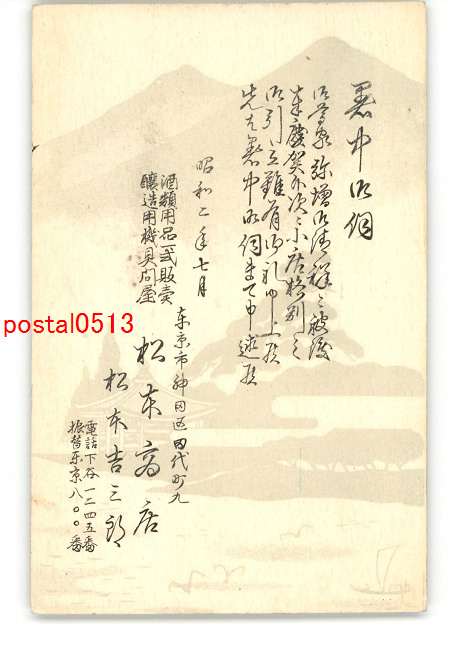 暑中御伺
御尊家弥増御清祥被渡
奉慶賀候次ニ小店格別之
御引立難有御礼申上候
先は暑中御伺まで申述候
昭和二年七月
酒類用品一式販売
醸造用機具問屋
東京市神田区田代町九
松本商店
松本吉三郎
電話下谷一二四五番
振替東京八〇〇番
postal0513